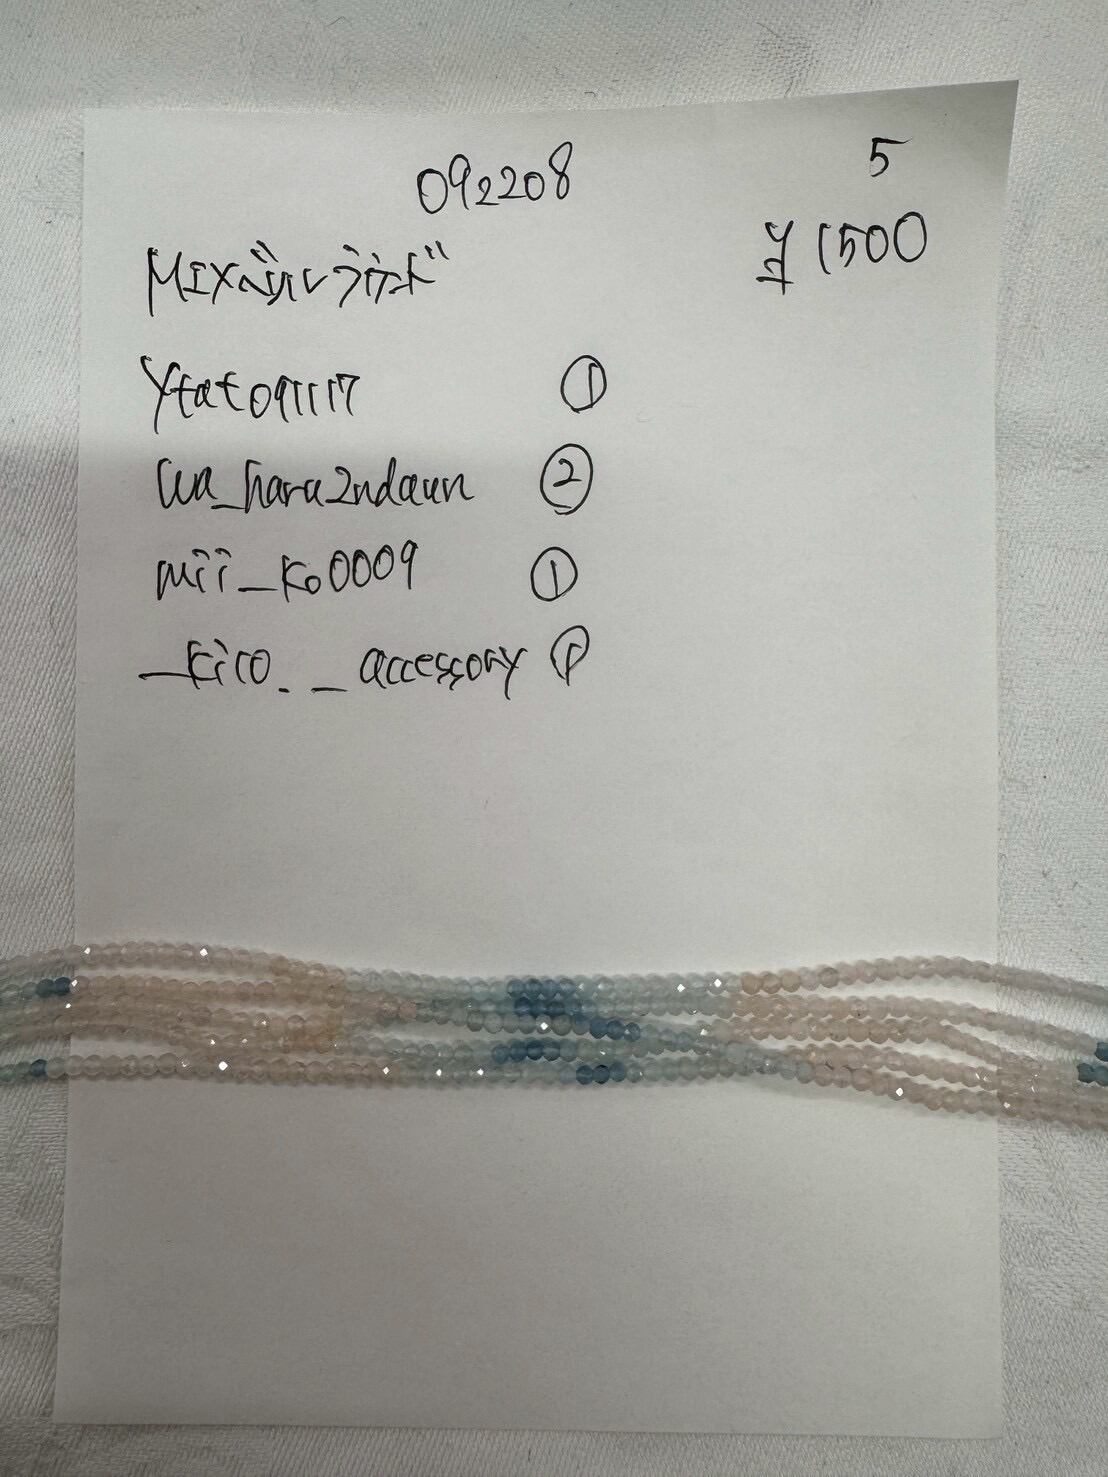 092208
5
MIXベリルラウンド
¥1500
ytat091117 ①
wa_hara2ndaun ②
mii_ko0009 ①
_kico._ _accessory ①